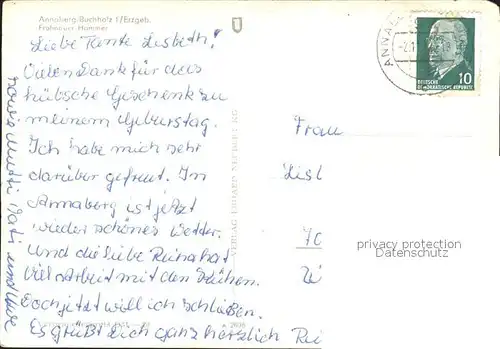 Annaberg-Buchholz 1/Erzgeb.
Frohnauer Hammer
Liebe Tante Lisbeth!
Vielen Dank für das
hübsche Geschenk zu
meinem Geburtstag.
Ich habe mich sehr
darüber gefreut. Im
Annaberg ist jetzt
wieder schönes Wetter.
Und die liebe Reina hat
viel Arbeit mit den Kühen.
Doch jetzt will ich schließen.
Es grüßt Dich ganz herzlich Rei
Mutti Vati und Uwe
ANNABE
10
DEUTSCHE
DEMOKRATISCHE REPUBLIK
Frau
Lisb
70
privacy protection
Datenschutz
VERLAG ERHARD NEUBERT KG